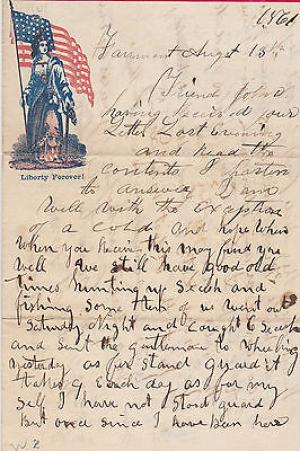 1861
Fairmont Augst 15th
Friend John
having received your
Letter Last Evening
and Read the
contents I hasten
to answer I am
Liberty Forever!
Well with the Exception
of a cold and hope when
when you Receive this may find you
well We still have good old
times hunting up Secesh and
fishing Some Them of us went out
Saturday Night and Caught 6 Secesh
and Sent the gentlemen to Wheeling
yesterday as for Stand guard it
takes 9 Each day as for my
Self I have not Stood guard
But once Since I have been here